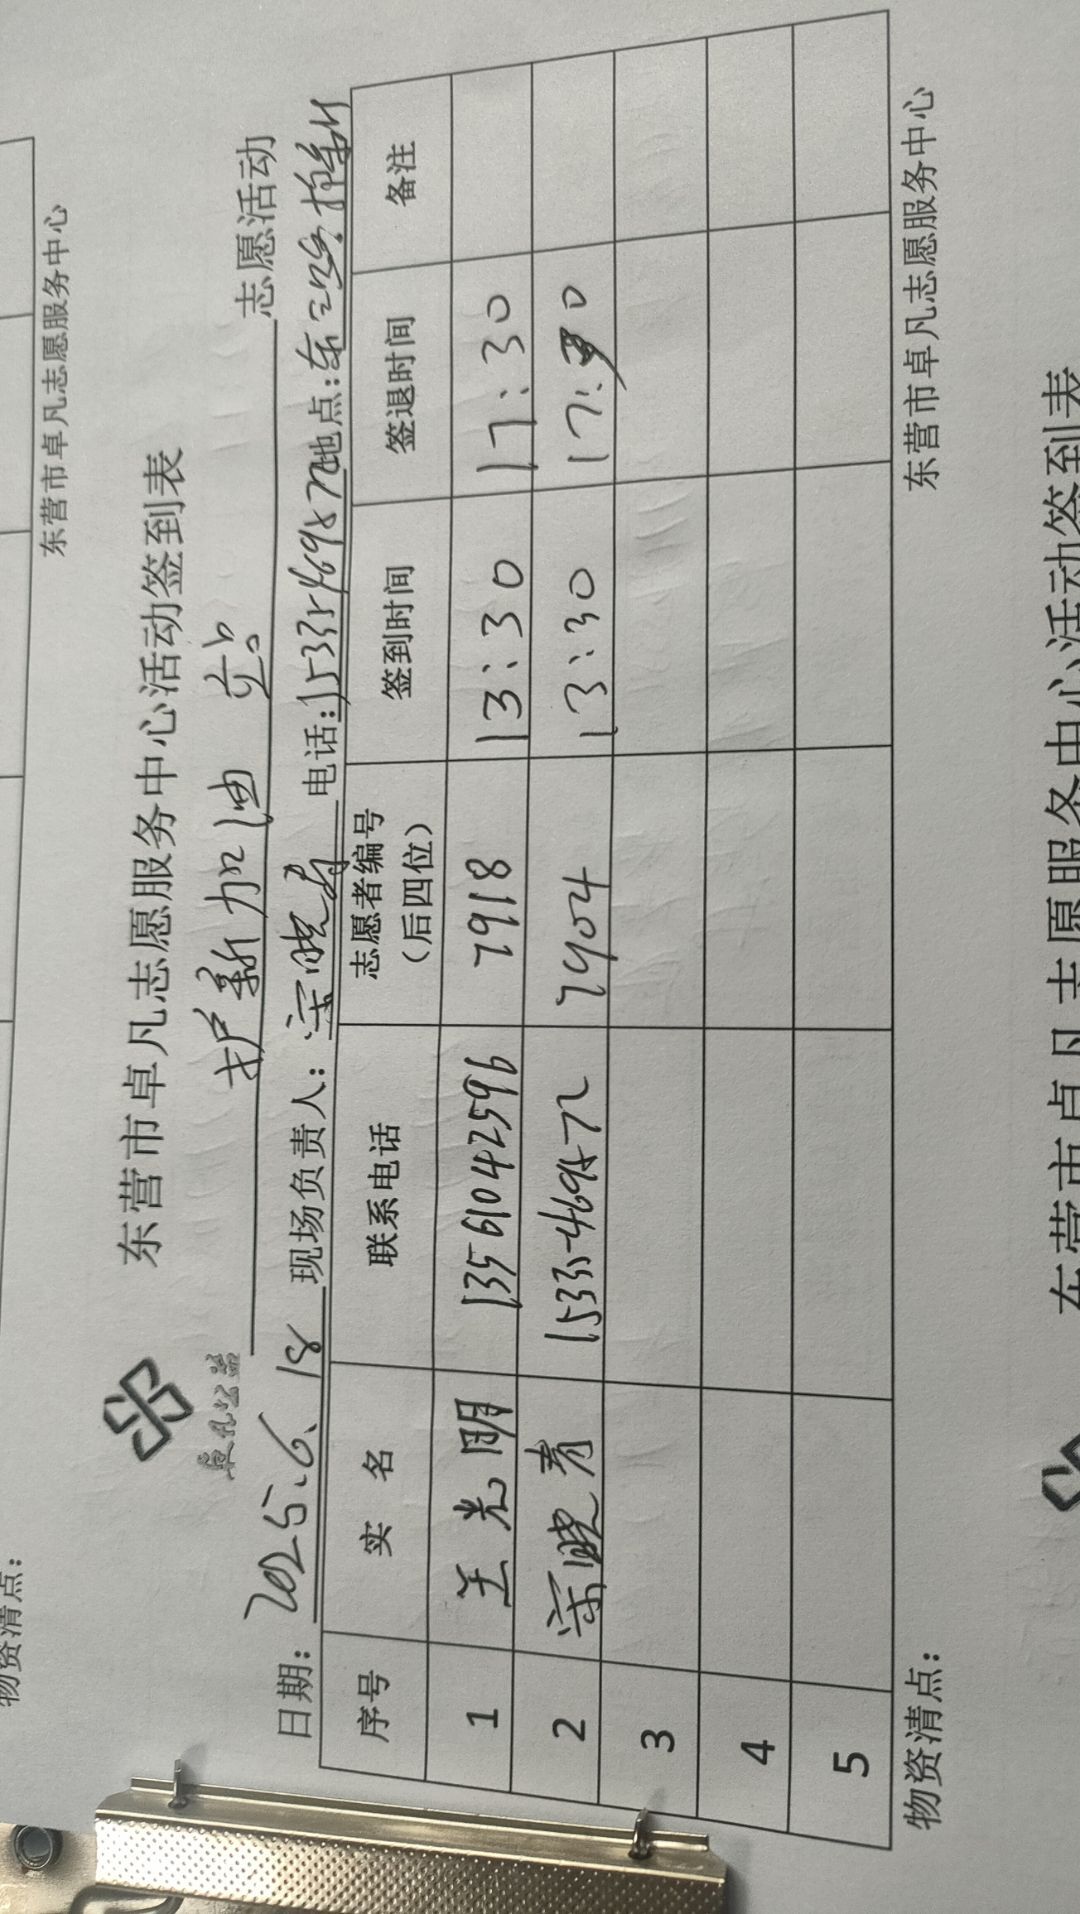 物资清点：
东营市卓凡志愿服务中心
卓凡公益
东营市卓凡志愿服务中心活动签到表
护新加油站 志愿活动
日期：2025.6.18 现场负责人：宋晓春 电话：15335469572 地点：东三路
序号 实名 联系电话 志愿者编号（后四位） 签到时间 签退时间 备注
1 王光明 13561042596 7918 13:30 17:30
2 宋晓春 15335469572 7904 13:30 17:30
3
4
5
物资清点：
东营市卓凡志愿服务中心
东营市卓凡志愿服务中心活动签到表